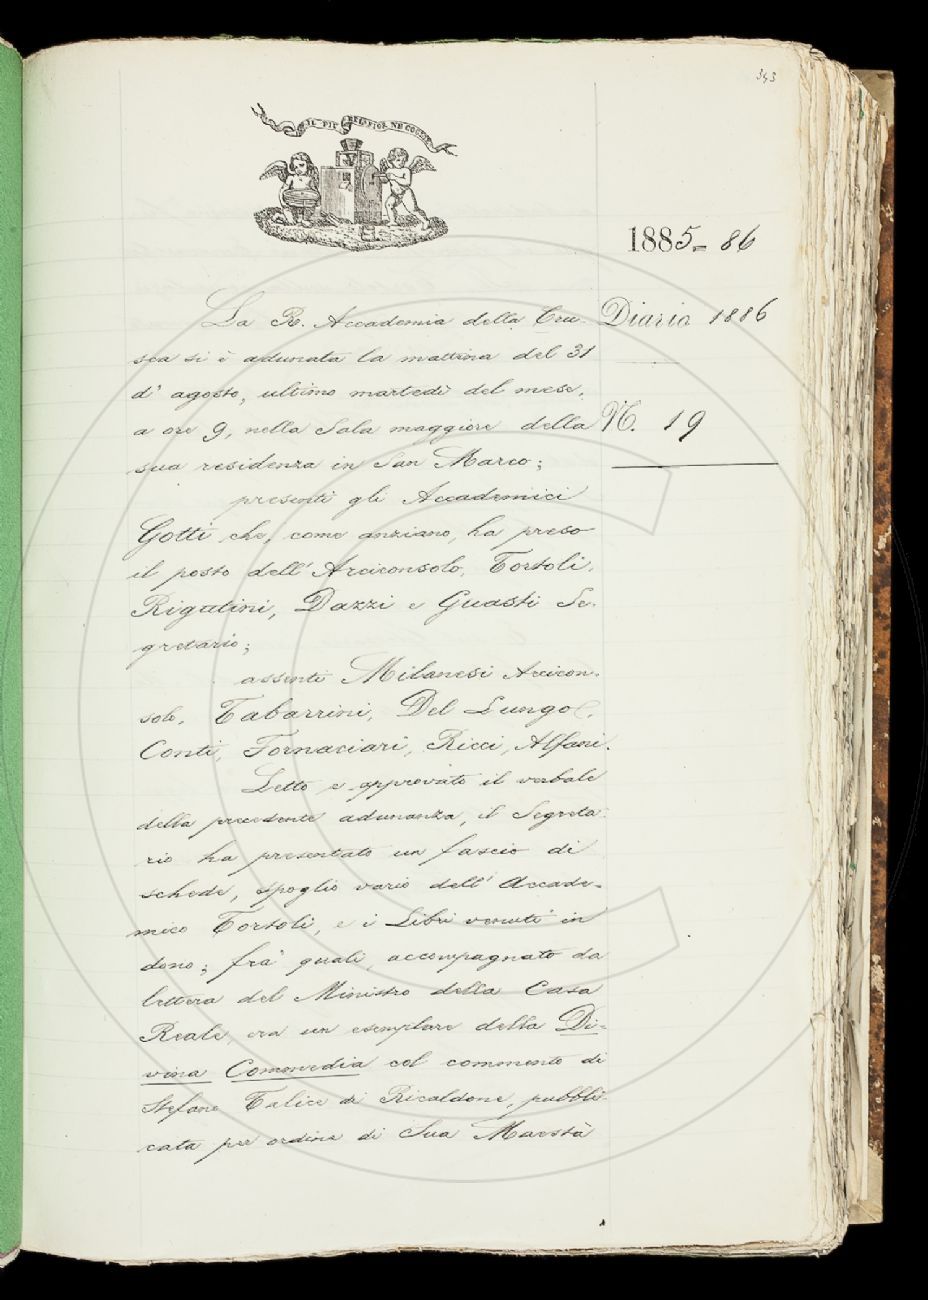 343
IL PIÙ BEL FIOR NE COGLIE
1885-86
Diario 1886
N. 19
La R. Accademia della Cru-
sca si è adunata la mattina del 31
d'agosto, ultimo martedì del mese,
a ore 9, nella Sala maggiore della
sua residenza in San Marco;
presenti gli Accademici
Gotti che, come anziano, ha preso
il posto dell'Arciconsolo, Tortoli,
Rigutini, Dazzi e Guasti Se-
gretario;
assenti Milanesi Arcicon-
solo, Tabarrini, Del Lungo,
Conti, Fornaciari, Ricci, Alfani.
Letto e approvato il verbale
della precedente adunanza, il Segreta-
rio ha presentato un fascio di
schede, spoglio vario dell'Accade-
mico Tortoli, e i Libri venuti in
dono; fra' quali, accompagnato da
lettera del Ministro della Casa
Reale, era un esemplare della Di-
vina Commedia col commento di
Stefano Talice da Ricaldone, pubbli-
cata per ordine di Sua Maestà